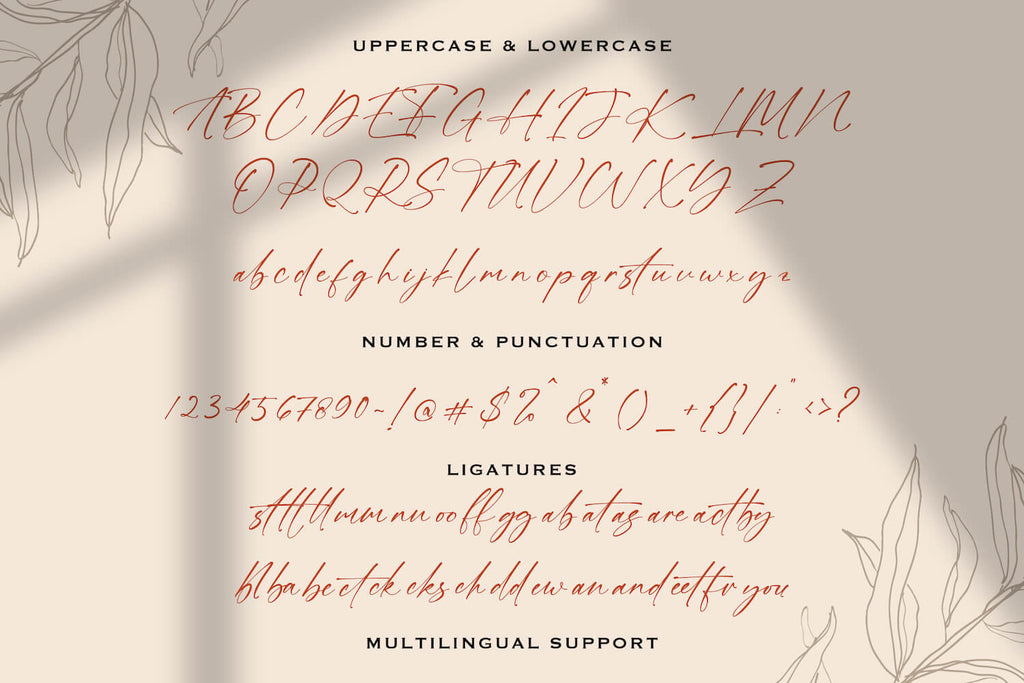 UPPERCASE & LOWERCASE
A B C D E F G H I J K L M N
O P Q R S T U V W X Y Z
a b c d e f g h i j k l m n o p q r s t u v w x y z
NUMBER & PUNCTUATION
1 2 3 4 5 6 7 8 9 0 ~ ! @ # $ % ^ & * ( ) _ + { } | : " < > ?
LIGATURES
st tt ll mm nn oo ff gg ab at as are act by
bl ba be ct ck cks ch dd ew an and eet fr you
MULTILINGUAL SUPPORT